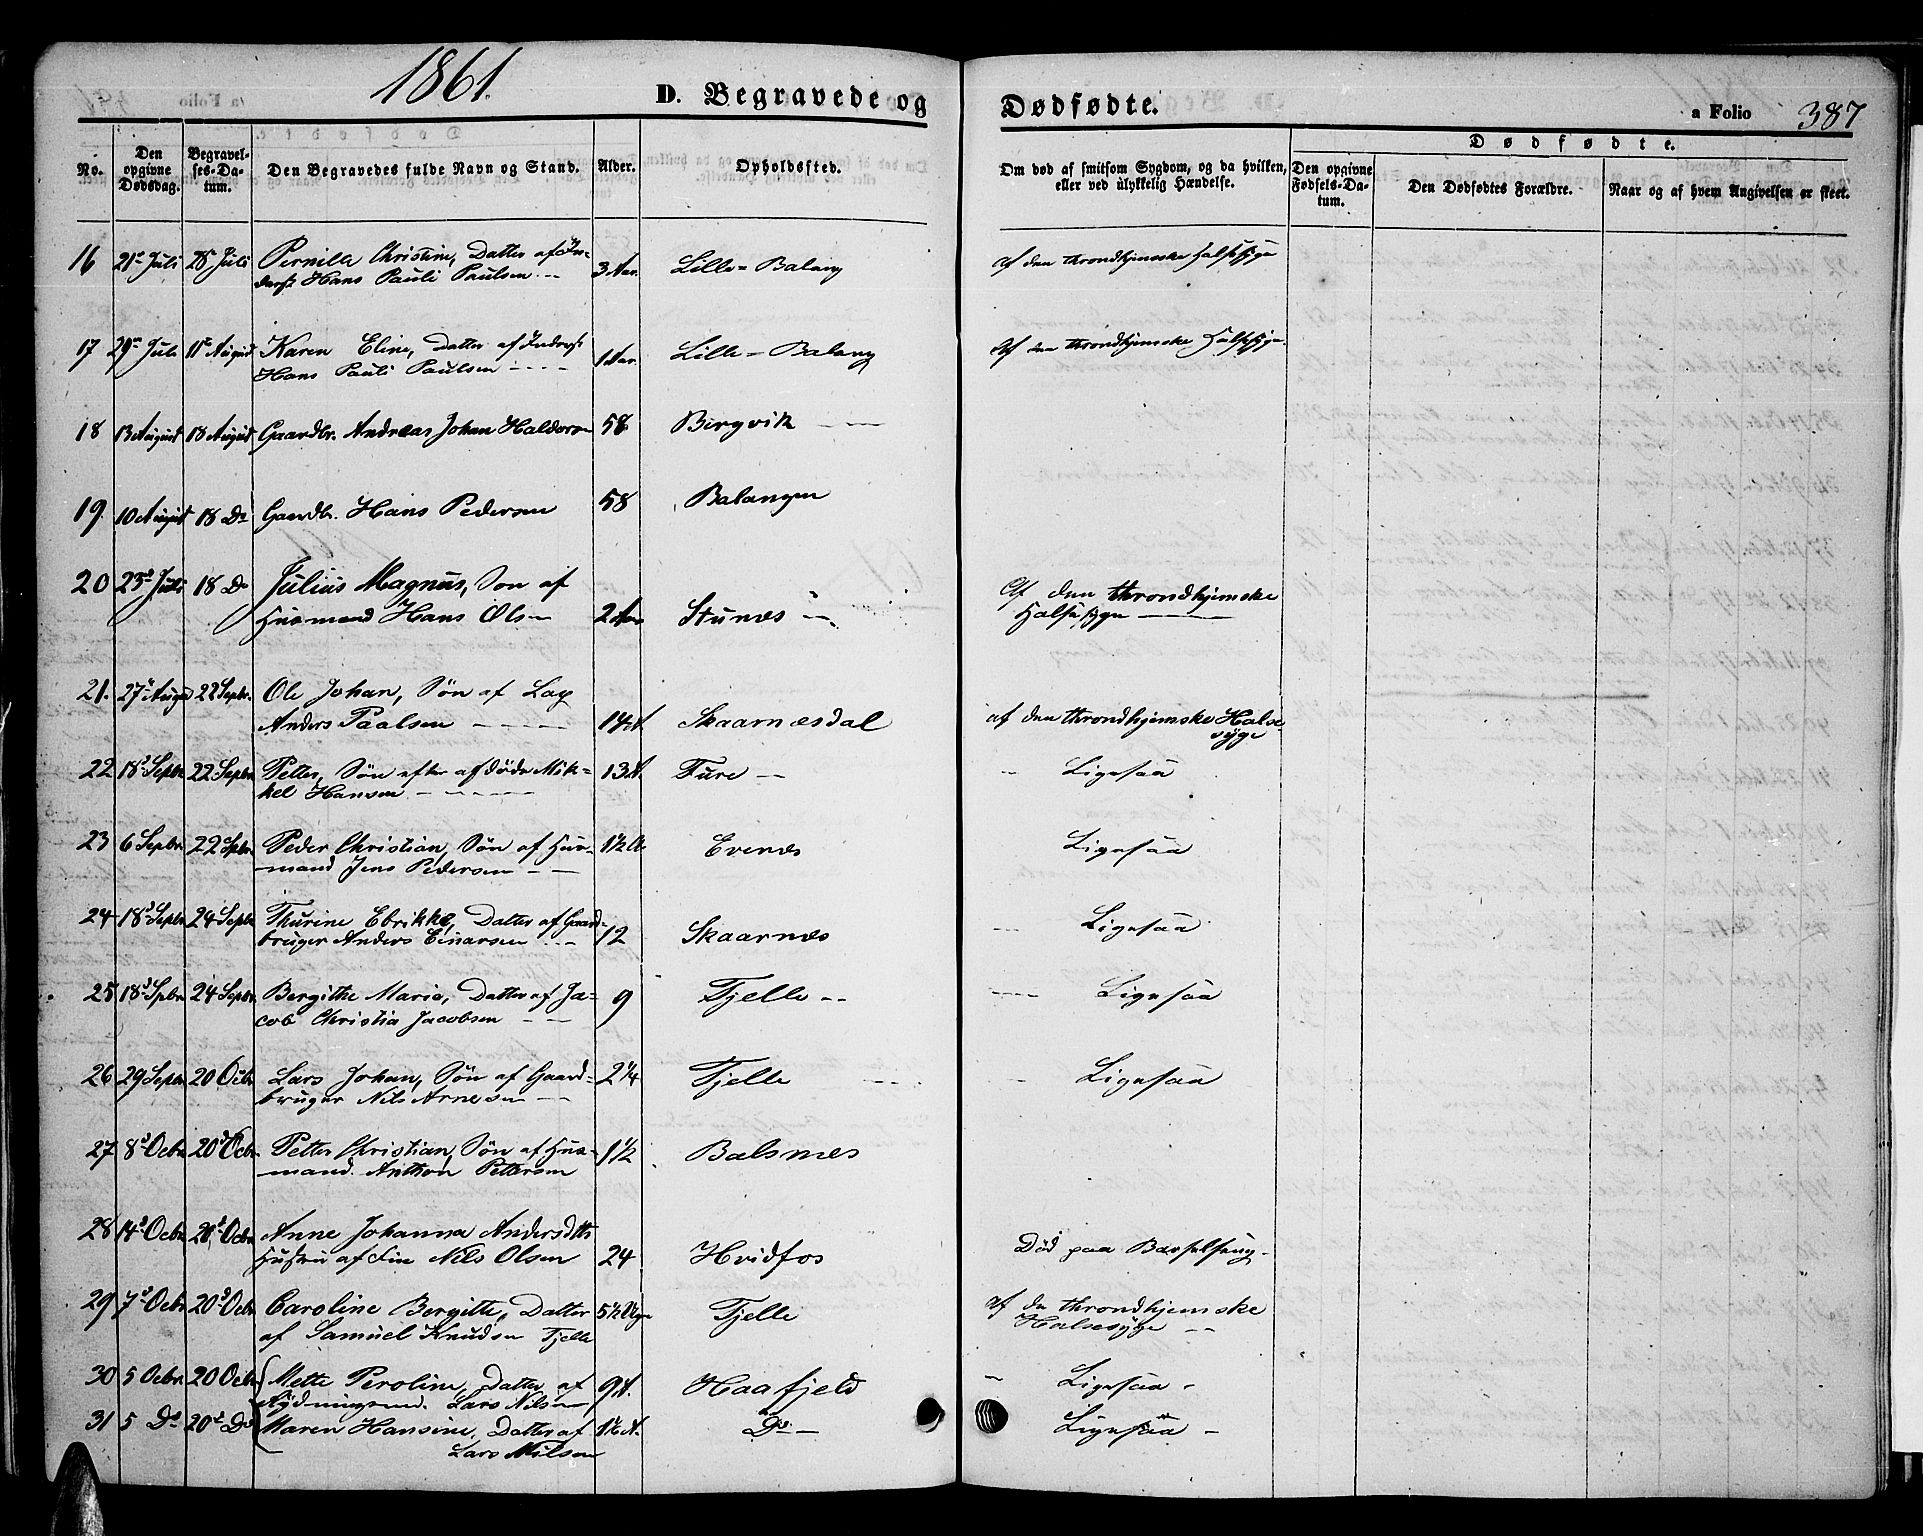 1861.
D. Begravede og Dødfødte.
a Folio 387
No.
Den opgivne Dødsdag.
Begravelses-Datum.
Den Begravedes fulde Navn og Stand.
Alder.
Opholdssted.
Om død af smitsom Sygdom, og da hvilken, eller ved ulykkelig Hændelse.
Dødfødte.
Den opgivne Fødsels-Datum.
Den Dødfødtes Forældre.
Naar og af hvem Angivelsen er skeet.
16 21de Juli 28de Juli Pernille Christine, Datter af Inderst Hans Pauli Paulsen 3 Aar. Lille=Balang Af den throndhjemske Halssyge
17 29de Juli 11te August Karen Eline, Datter af Inderst Hans Pauli Paulsen 1 Aar. Lille=Balang Af den throndhjemske Halssyge
18 13 August 18 August Gaardbr. Andreas Johan Haldorsen 58 Bergvik
19. 10 August 18 Do Gaardbr. Hans Pedersen 58 Balangen
20 23de Juli 18 Do Julius Magnus, Søn af Husmand Hans Olsen 2 Aar Stunæs Af den throndhjemske Halsesyge
21. 27 August 22 Sepbr. Ole Johan, Søn af Lap Anders Paalsen Skaarnæsdal af den throndhjemske Halsesyge
22 18de Sepbr 22 Sepbr Petter, Søn efter afdøde Mikkel Hansen 13 A. Fure Ligesaa
23 6 Sepbr 22 Sepbr Peder Christian, Søn af Husmand Jens Pedersen 1½ A Evenæs Ligesaa
24 18de Sepbr 24 Sepbr Thurine Ebrikke, Datter af Gaardbruger Anders Einarsen 12 Skaarnæs Ligesaa
25 18de Spbr 24 Sepbr. Bergithe Marie, Datter af Jacob Christia Jacobsen 9 Tjelle Ligesaa
26 29 Sepbr 20 Octbr Lars Johan, Søn af Gaardbruger Nils Arnesen 2¼ Tjelle Ligesaa
27 8de Ocbr 20de Ocbr. Petter Christian, Søn af Husmand Anthon Pettersen 1½ Balsnæs
28 14de Ocbr 20de Ocbr Anne Johanna Andersdtr Hustru af Fin Nils Olsen 24 Hvidfos Død paa Barselseng
29 7de Ocbr 20de Ocbr Caroline Bergitte, Datter af Samuel Knudsen Tjelle 5½ Uger Tjelle af den throndhjemske Halsesyge
30 5 Ocbr 20 Ocbr Mette Peroline, Datter af Rydningsmd. Lars Nilsen 9 A. Haafjeld Ligesaa
31 5 Do 20de Do Maren Hansine, Datter af Lars Nilsen 1½ A. Do Ligesaa